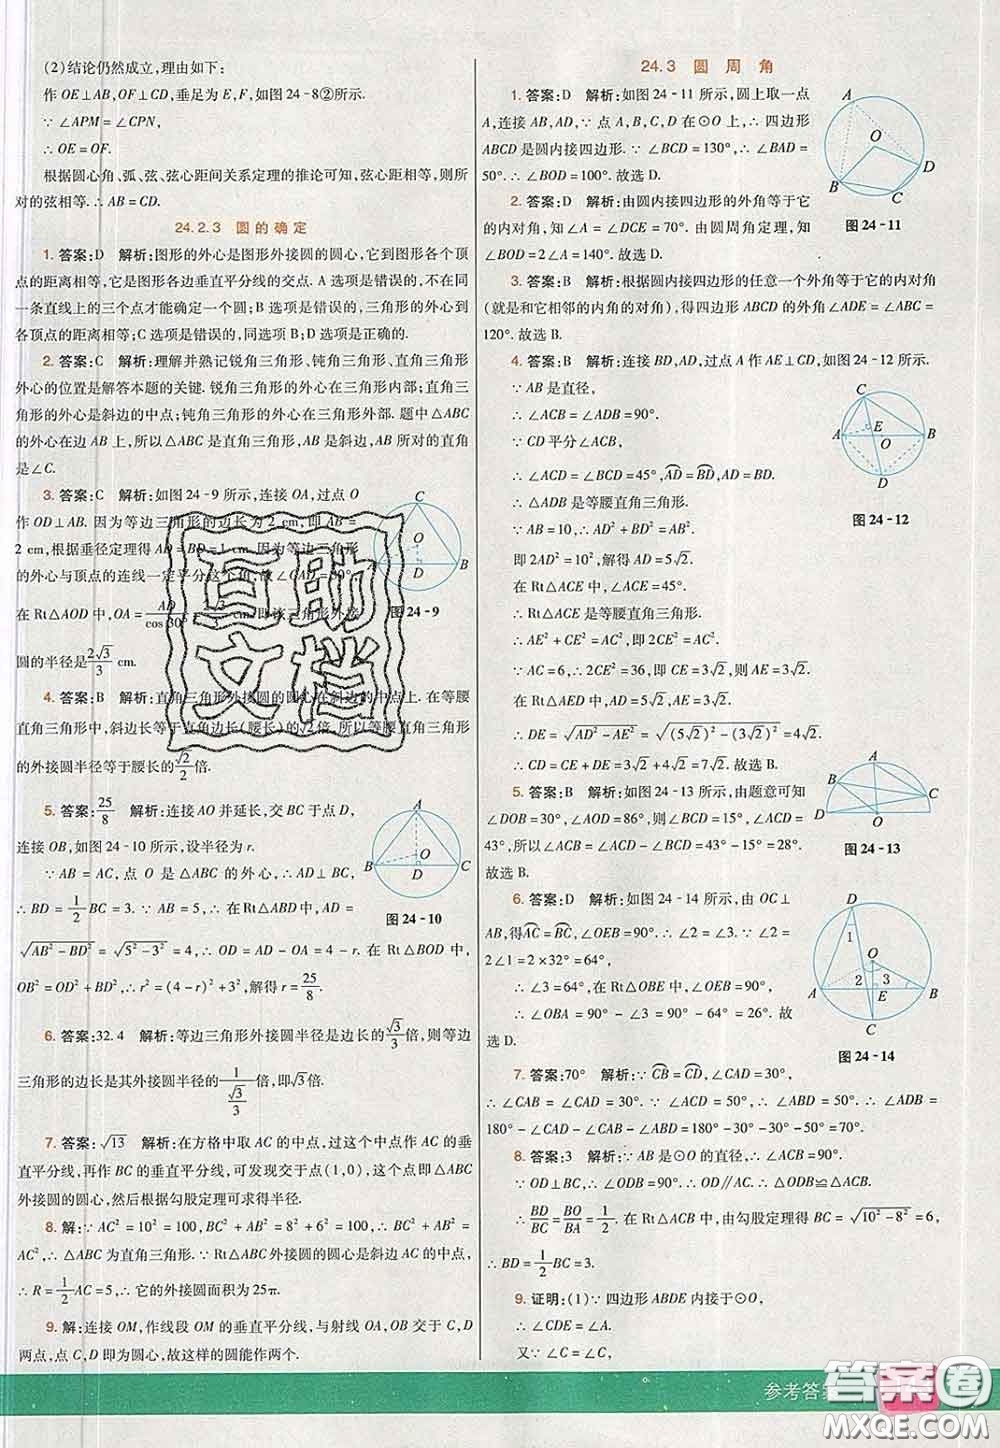 (2)结论仍然成立,理由如下:
作 OE⊥AB,OF⊥CD,垂足为 E,F,如图 24-8②所示.
∵ ∠APM=∠CPN,
∴ OE=OF.
根据圆心角、弧、弦、弦心距间关系定理的推论可知,弦心距相等,则所
对的弦相等.∴ AB=CD.
24.2.3 圆的确定
1. 答案:D 解析:图形的外心是图形外接圆的圆心,它到图形各个顶
点的距离相等,它是图形各边垂直平分线的交点. A 选项是错误的,不在同
一条直线上的三个点才能确定一个圆;B 选项是错误的,三角形的外心到
各顶点的距离相等;C 选项是错误的,同选项 B;D 选项是正确的.
2. 答案:C 解析:理解并熟记锐角三角形、钝角三角形、直角三角形
外心的位置是解答本题的关键. 锐角三角形的外心在三角形内部;直角三
角形的外心是斜边的中点;钝角三角形的外心在三角形外部. 题中△ABC
的外心在边 AB 上,所以△ABC 是直角三角形,AB 是斜边,所对的直角
是∠C.
3. 答案:C 解析:如图 24-9 所示,连接 OA,过点 O
作 OD⊥AB. 因为等边三角形的边长为 2 cm,即 AB=
2 cm,根据垂径定理得 AD=BD=1 cm. 因为等边三角形
的外心与顶点的连线一定平分这个角,故∠OAD=30°.
在 Rt△AOD 中,OA=AD/cos 30°=2√3/3,即该三角形外接
圆的半径是2√3/3 cm.
C
O
A D B
图 24-9
4. 答案:B 解析:直角三角形外接圆的圆心在斜边的中点上. 在等腰
直角三角形中,斜边长等于直角边长(腰长)的√2倍. 所以等腰直角三角形
的外接圆半径等于腰长的√2/2倍.
5. 答案:25/8 解析:连接 AO 并延长,交 BC 于点 D,
连接 OB,如图 24-10 所示,设半径为 r.
∵ AB=AC,点 O 是△ABC 的外心,
∴ BD=1/2BC=3. ∴ 在 Rt△ABD 中,AD=
√(AB²-BD²)=√(5²-3²)=4. ∴ OD=AD-AO=4-r. 在 Rt△BOD 中,
OB²=OD²+BD²,∴ r²=(4-r)²+3²,解得 r=25/8.
A
O
B D C
图 24-10
6. 答案:32.4 解析:等边三角形外接圆半径是边长的√3/3倍,则等边
三角形的边长是其外接圆半径的1/(√3/3)倍,即√3倍.
7. 答案:√13 解析:在方格中取 AC 的中点,过这个中点作 AC 的垂
直平分线,再作 BC 的垂直平分线,可发现交于点(1,0),这个点即△ABC
外接圆的圆心,然后根据勾股定理可求得半径.
8. 解:∵ AC²=10²=100,BC²+AB²=8²+6²=100,∴ AC²=BC²+
AC²,∴ △ABC 为直角三角形.∵ Rt△ABC 外接圆的圆心是斜边 AC 的中点,
∴ R=1/2AC=5,∴ 它的外接圆面积为 25π.
9. 解:连接 OM,作线段 OM 的垂直平分线,与射线 OA,OB 交于 C,D
两点,点 C,D 即为圆心,故这样的圆能作两个.
24.3 圆 周 角
1. 答案:D 解析:如图 24-11 所示,圆上取一点
A,连接 AB,AD. ∵ 点 A,B,C,D 在⊙O 上,∴ 四边形
ABCD 是圆内接四边形. ∵ ∠BCD=130°,∴ ∠BAD=
50°.∴ ∠BOD=100°.故选 D.
A
O
B C D
图 24-11
2. 答案:D 解析:由圆内接四边形的外角等于它
的内对角,知∠A=∠DCE=70°. 由圆周角定理,知
∠BOD=2∠A=140°.故选 D.
3. 答案:B 解析:根据圆内接四边形的任意一个外角等于它的内对角
(就是和它相邻的内角的对角),得四边形 ABCD 的外角∠ADE=∠ABC=
120°.故选 B.
4. 答案:B 解析:连接 BD,AD,过点 A 作 AE⊥CD,如图 24-12 所示.
∵ AB 是直径,
∴ ∠ACB=∠ADB=90°.
∵ CD 平分∠ACB,
∴ ∠ACD=∠BCD=45°,AD=BD,AD=BD.
∴ △ADB 是等腰直角三角形.
∵ AB=10,∴ AD²+BD²=AB².
即 2AD²=10²,解得 AD=5√2.
在 Rt△ACE 中,∠ACE=45°.
∴ Rt△ACE 是等腰直角三角形.
∴ AE²+CE²=AC²,即 2CE²=AC².
∵ AC=6,∴ 2CE²=36,即 CE=3√2,则 AE=3√2.
在 Rt△AED 中,AD=5√2,AE=3√2.
∴ DE=√(AD²-AE²)=√((5√2)²-(3√2)²)=4√2.
∴ CD=CE+DE=3√2+4√2=7√2.故选 B.
C
A E B
O
D
图 24-12
5. 答案:B 解析:如图 24-13 所示,由题意可知
∠DOB=30°,∠AOD=86°,则∠BCD=15°,∠ACD=
43°.∴ ∠ACB=∠ACD-∠BCD=43°-15°=28°.
故选 B.
A
B C
D O
图 24-13
6. 答案:D 解析:如图 24-14 所示,由 OC⊥
AB,得AC=BC,∠OEB=90°. ∴ ∠2=∠3. ∵ ∠2=
2∠1=2×32°=64°,
∴ ∠3=64°,在 Rt△OBE 中,∠OEB=90°,
∴ ∠OBA=90°-∠3=90°-64°=26°. 故
选 D.
D
1
O
2 3
A E B
C
图 24-14
7. 答案:70° 解析:∵ CB=CD,∠CAD=30°,
∴ ∠CAB=∠CAD=30°. ∵ ∠ACD=∠ABD=50°,∴ ∠ADB=
180°-∠CAB-∠CAD-∠ABD=180°-30°-30°-50°=70°.
8. 答案:3 解析:∵ AB 是⊙O 的直径,∴ ∠ACB=
90°.∵ OD⊥BC,∴ OD∥AC.∴ △ODB≌△ACB.
∴ BD/BC=BO/BA=1/2. 在 Rt△ACB 中,由勾股定理得 BC=√(10²-8²)=6,
∴ BD=1/2BC=3.
9. 证明:(1)∵ 四边形 ABDE 内接于⊙O,
∴ ∠CDE=∠A.
又∵ ∠C=∠C,
互助
文档
参考答案
答案卷
MXQE.COM